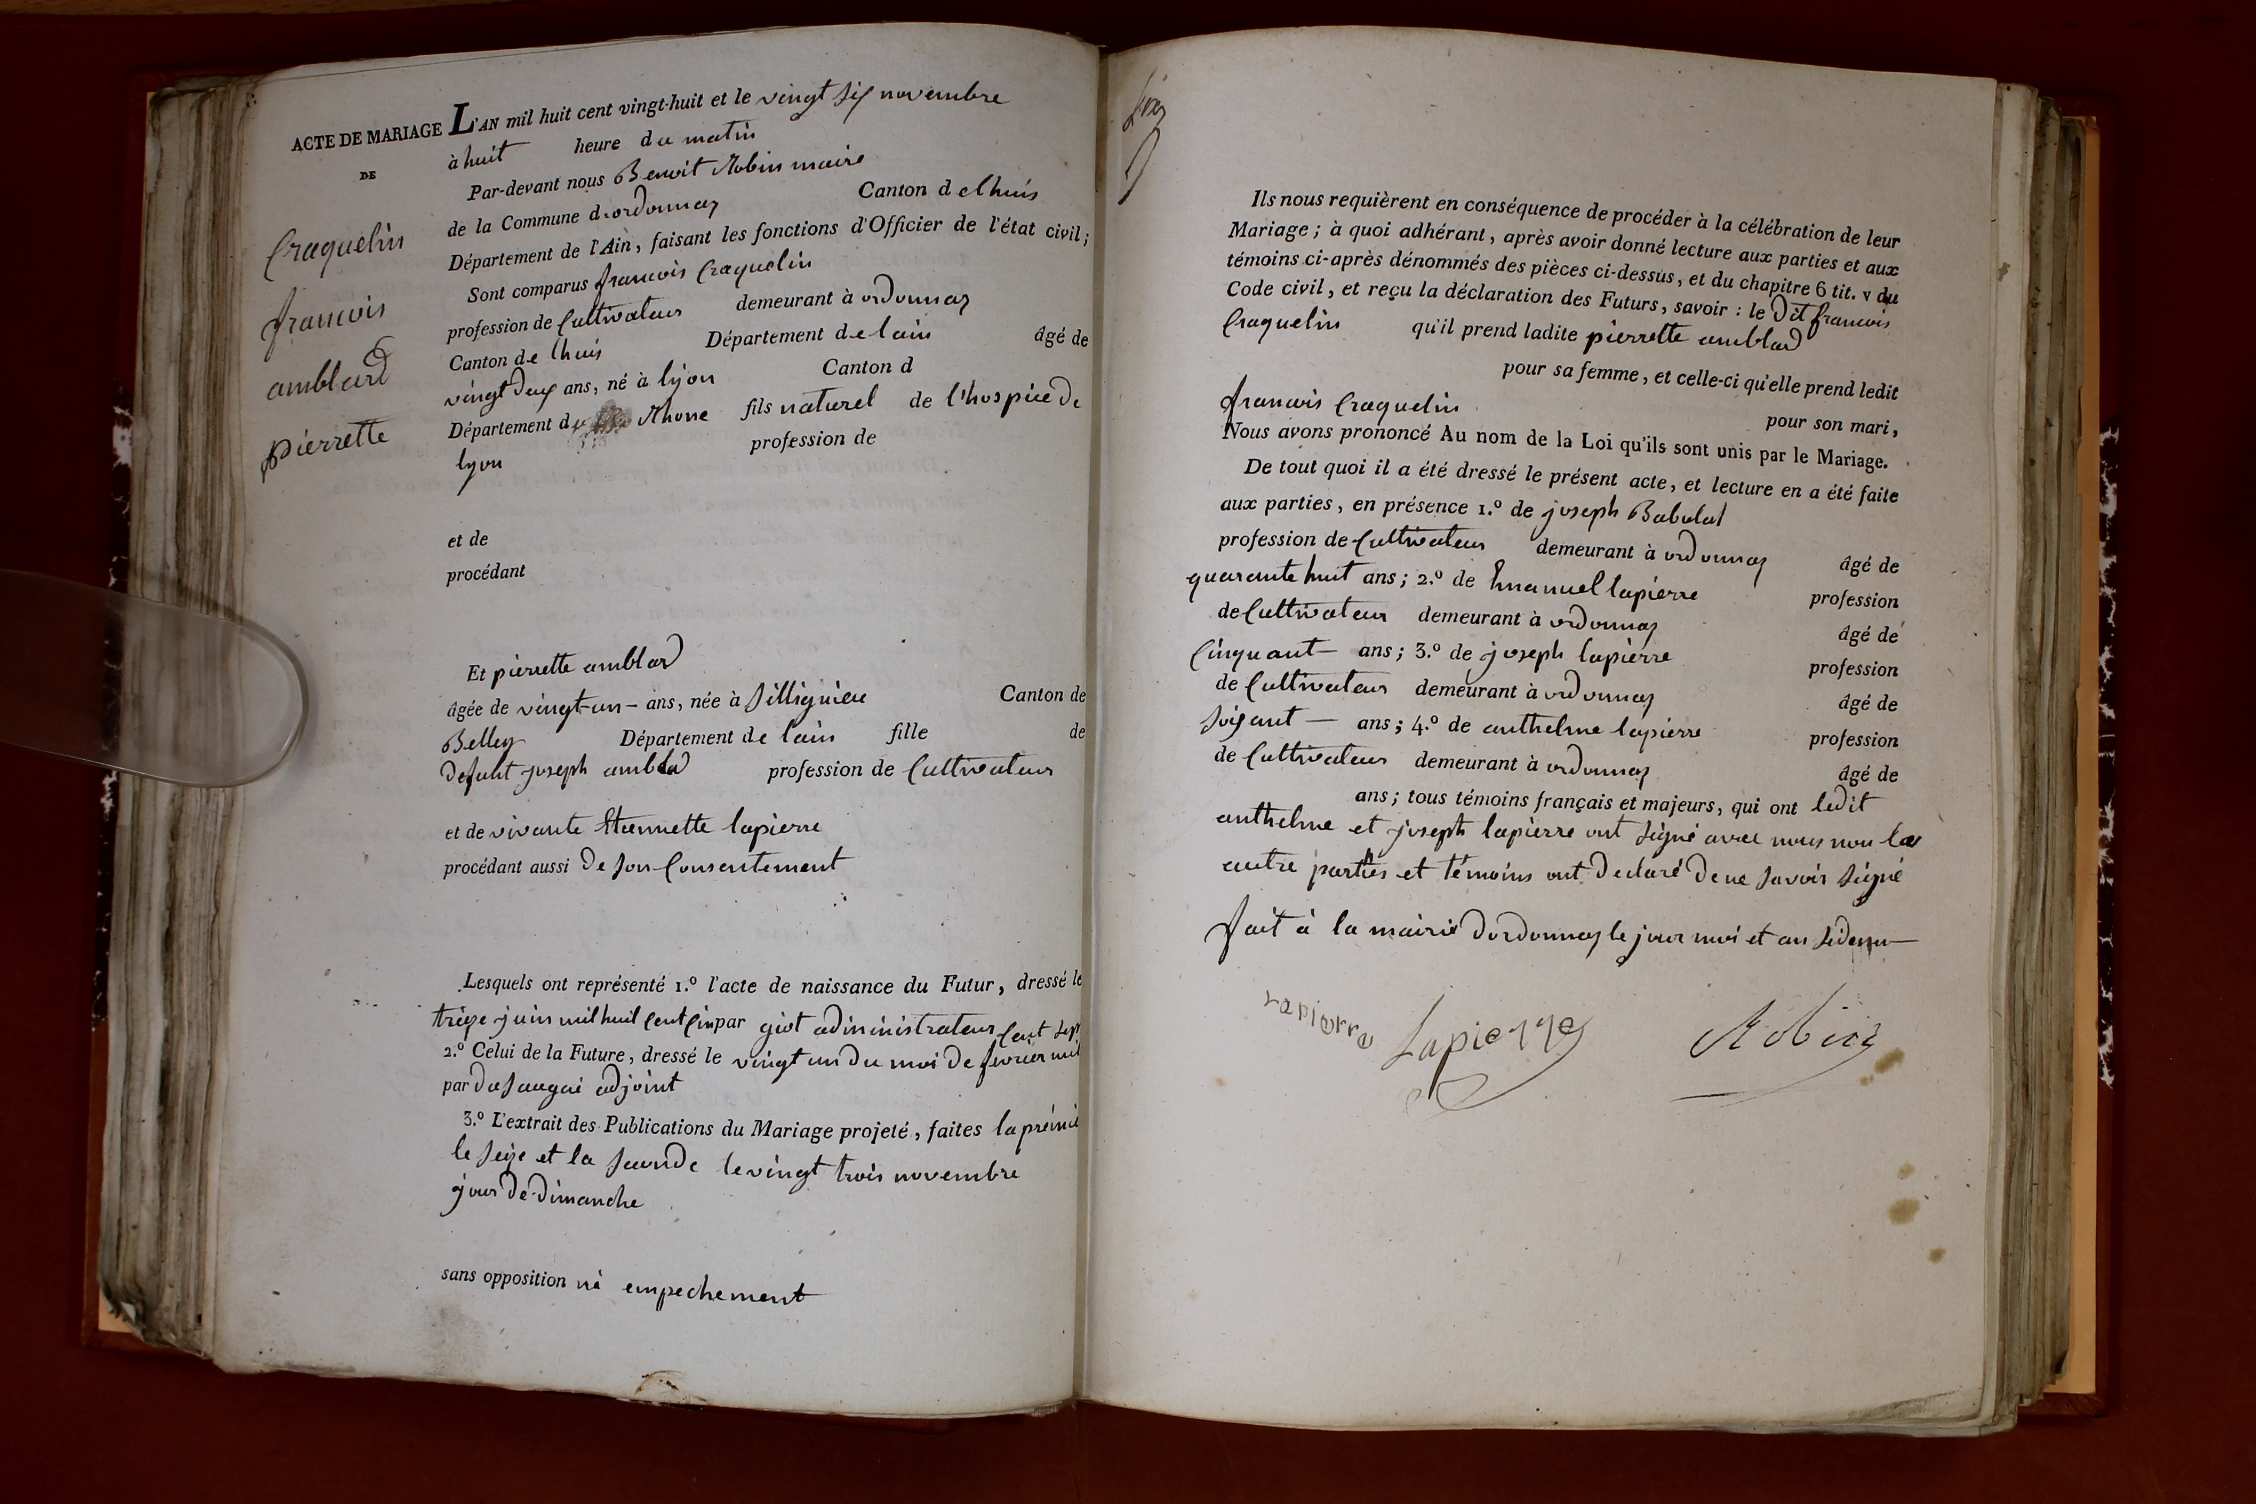 ACTE DE MARIAGE L'AN mil huit cent vingt-huit et le vingt six novembre
DE
à huit heure du matin
Par-devant nous Benoit Robin maire
de la Commune d'ordonnaz Canton d elhuis
Département de l'Ain, faisant les fonctions d'Officier de l'état civil;
Craquelin
françois
&
amblard
pierrette
Sont comparus françois Craquelin
profession de Cultivateur demeurant à ordonnaz
Canton de lhuis Département de lain âgé de
vingt deux ans, né à lyon Canton d
Département du Rhone fils naturel de l'hospice de
lyon profession de
et de
procédant
Et pierrette amblard
âgée de vingt-un - ans, née à Sillignieu Canton de
Belley Département de lain fille de
defunt joseph amblad profession de Cultivateur
et de vivante Etiennette lapierre
procédant aussi de son Consentement
Lesquels ont représenté 1.º l'acte de naissance du Futur, dressé le
treize juin mil huit Cent Cinq par giot administrateur
2.º Celui de la Future, dressé le vingt un du moi de fevrier mil huit Cent sept
par adjoint
3.º L'extrait des Publications du Mariage projeté, faites la prémie
le seize et la seconde le vingt trois novembre
jour de dimanche
sans opposition ni empechement
Ils nous requièrent en conséquence de procéder à la célébration de leur
Mariage; à quoi adhérant, après avoir donné lecture aux parties et aux
témoins ci-après dénommés des pièces ci-dessus, et du chapitre 6 tit. v du
Code civil, et reçu la déclaration des Futurs, savoir: le dit francois
Craquelin qu'il prend ladite pierrette amblad
pour sa femme, et celle-ci qu'elle prend ledit
francois Craquelin pour son mari,
Nous avons prononcé Au nom de la Loi qu'ils sont unis par le Mariage.
De tout quoi il a été dressé le présent acte, et lecture en a été faite
aux parties, en présence 1.º de joseph Babolat
profession de Cultivateur demeurant à ordonnaz âgé de
quarante huit ans; 2.º de Emanuel lapierre profession
de Cultivateur demeurant à ordonnaz âgé de
Cinquant - ans; 3.º de joseph lapierre profession
de Cultivateur demeurant à ordonnaz âgé de
soixant - ans; 4.º de anthelme lapierre profession
de Cultivateur demeurant à ordonnaz âgé de
ans; tous témoins français et majeurs, qui ont ledit
anthelme et joseph lapierre ont signé avec nous non les
autre parties et témoins ont declaré de ne savoir signé
fait à la mairie dordonnaz le jour moi et an sidessu
Lapierre Lapierre Robin